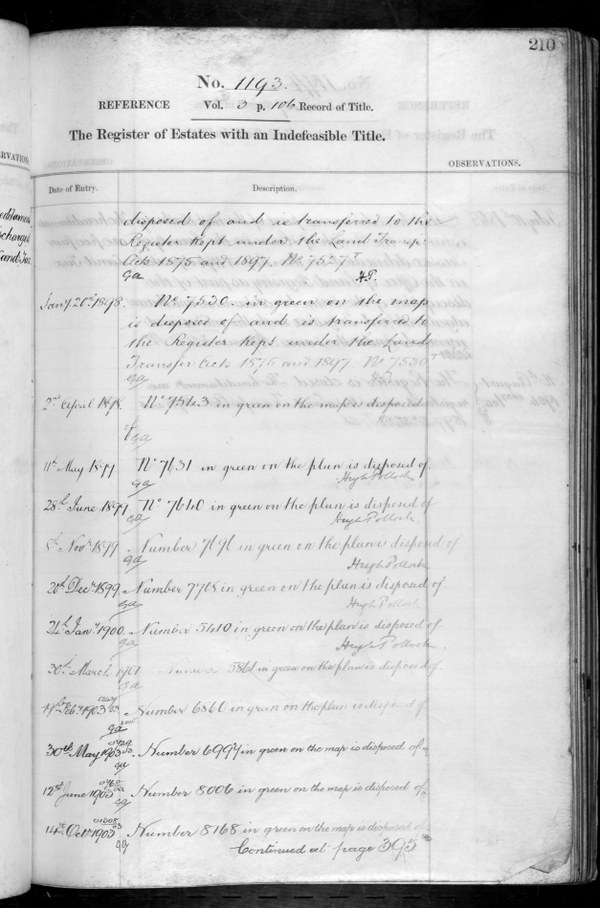 210
No. 1193.
REFERENCE Vol. 3 p. 106 Record of Title.
The Register of Estates with an Indefeasible Title.
OBSERVATIONS.
Date of Entry. Description.
disposed of and is transferred to the
Register kept under the Land Transfer
Acts 1875 and 1897. No 7527T
H.P.
Jany. 20th 1898. No 7530. in green on the map
is disposed of and is transferred to
the Register kept under the Land
Transfer Acts 1875 and 1897. No 7530T
2nd April 1898. No 7543 in green on the map is disposed
of
11th May 1899 No 7631 in green on the plan is disposed of.
Hugh Pollock
28th June 1899 No 7640 in green on the plan is disposed of
Hugh Pollock
Novr 1899 Number 7696 in green on the plan is disposed of
Hugh Pollock
20th Decr 1899. Number 7708 in green on the plan is disposed of
Hugh Pollock
Jany 1900. Number 5410 in green on the plan is disposed of
Hugh Pollock.
30th March 1901 Number in green on the plan is disposed of.
Feby 1903 Number 6360 in green on the plan is disposed of
30th May 1903 Number 6999 in green on the map is disposed of
12th June 1903 Number 8006 in green on the map is disposed of
14th Octr 1903 Number 8168 in green on the map is disposed of
Continued at page 395